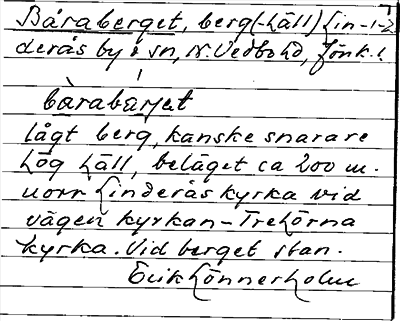 Båraberget, berg(-häll) Lin-
derås by i sn, N. Vedbo hd, Jönk.l.
bàrabàrjet
lågt berg, kanske snarare
hög häll, beläget ca 200 m.
norr Linderås kyrka vid
vägen kyrkan-Trehörna
kyrka. Vid berget stan.
Erik Lönnerholm